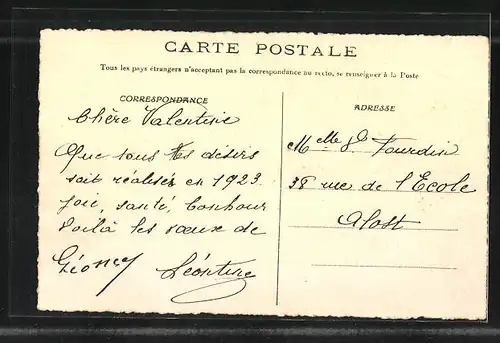 CARTE POSTALE
Tous les pays étrangers n'acceptant pas la correspondance au recto, se renseigner à la Poste
CORRESPONDANCE
ADRESSE
Chère Valentine
Que tous tes désirs
soit réalisés en 1923
joie, santé, bonheur
Voilà les vœux de
Léontine
Melle
38 rue de l'Ecole
Alost